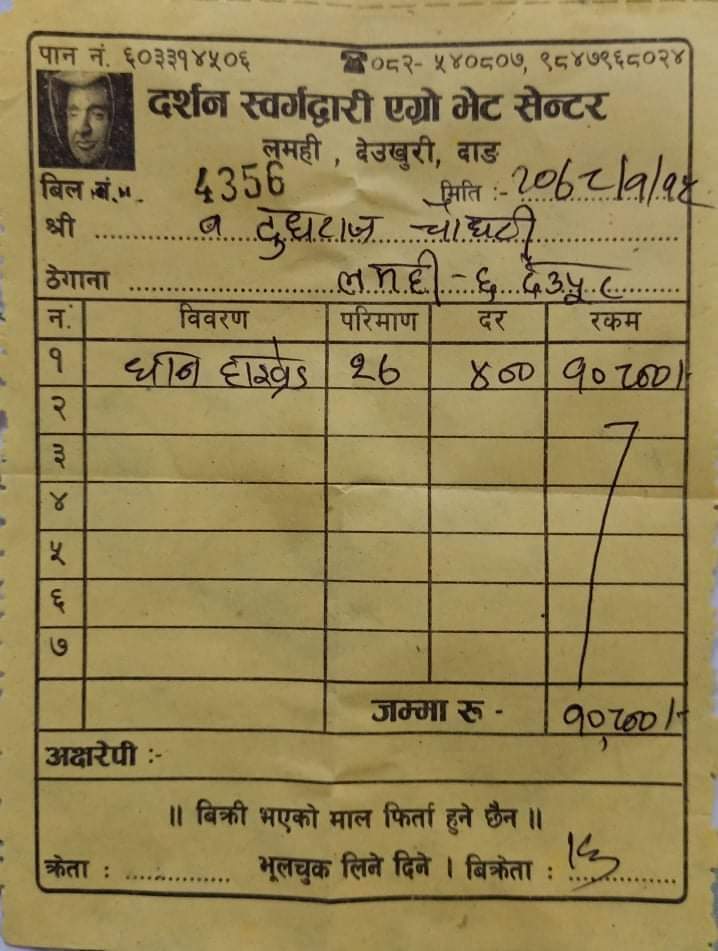 पान नं. ६०३३१४५०६ ☎०८२- ५४०८०७, ९८४७९६८०२४
दर्शन स्वर्गद्वारी एग्रो भेट सेन्टर
लमही , देउखुरी, दाङ
बिल नं. 4356 मिति :-
श्री
ठेगाना लमही - ६ देउपुर
न. विवरण परिमाण दर रकम
१ धान ४०० १०८००।-
२
३
४
५
६
७
जम्मा रु - १०,८००।-
अक्षरेपी :-
॥ बिक्री भएको माल फिर्ता हुने छैन ॥
क्रेता : भूलचुक लिने दिने । बिक्रेता :